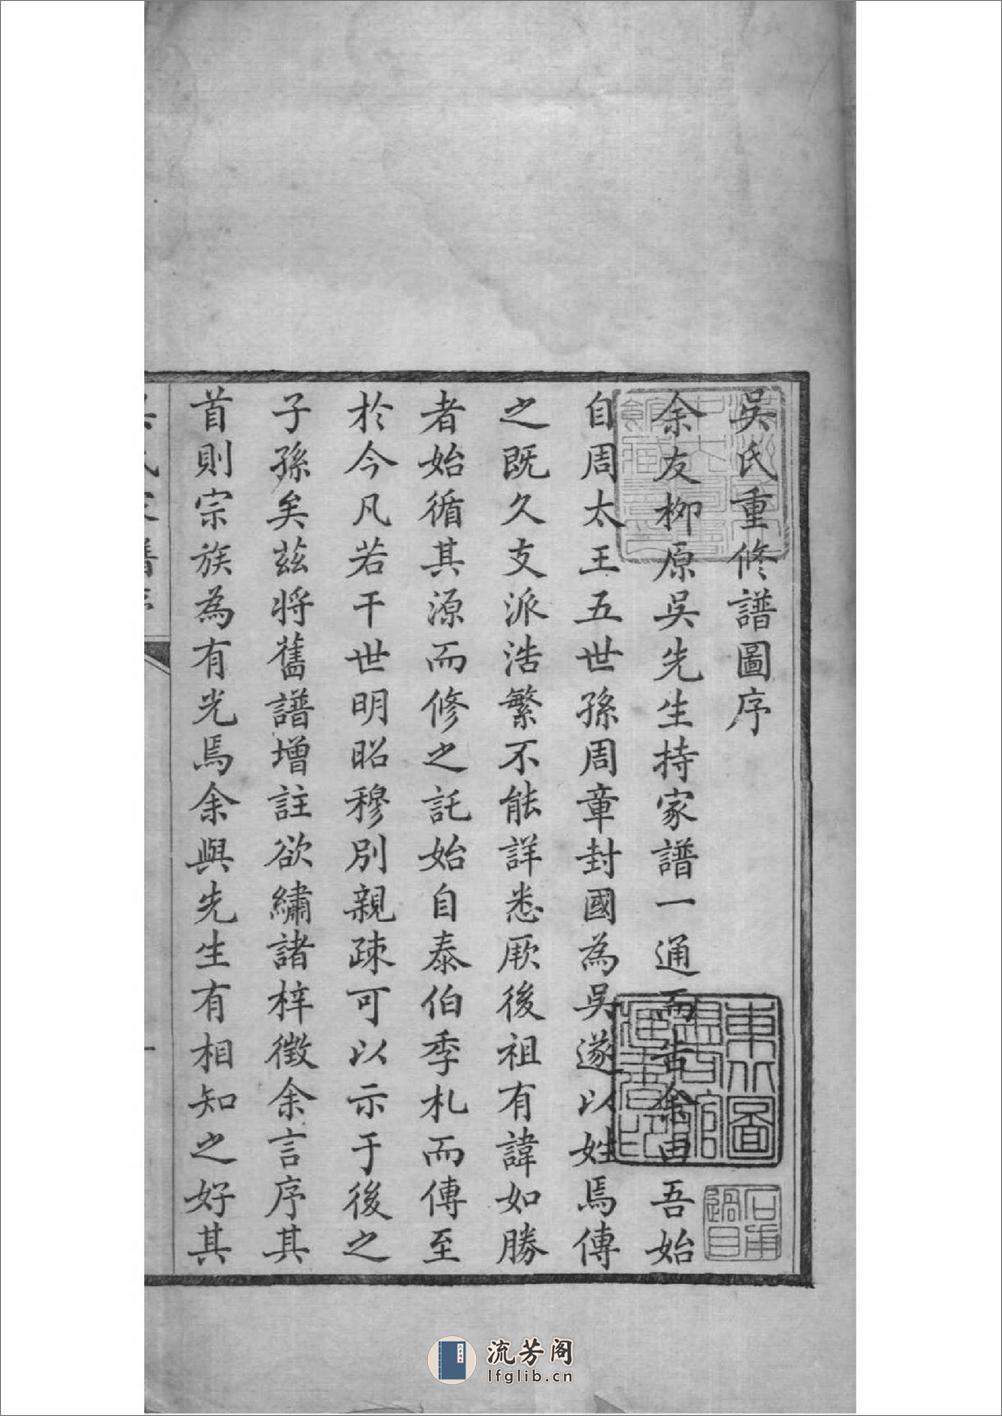 吳氏重修譜圖序
余友柳原吳先生持家譜一通而告余曰吾始
自周太王五世孫周章封國為吳遂以姓焉傳
之既久支派浩繁不能詳悉厥後祖有諱如勝
者始循其源而修之託始自泰伯季札而傳至
於今凡若干世明昭穆別親疎可以示于後之
子孫矣茲將舊譜增註欲繡諸梓徵余言序其
首則宗族為有光焉余與先生有相知之好其
流芳阁
lfglib.cn